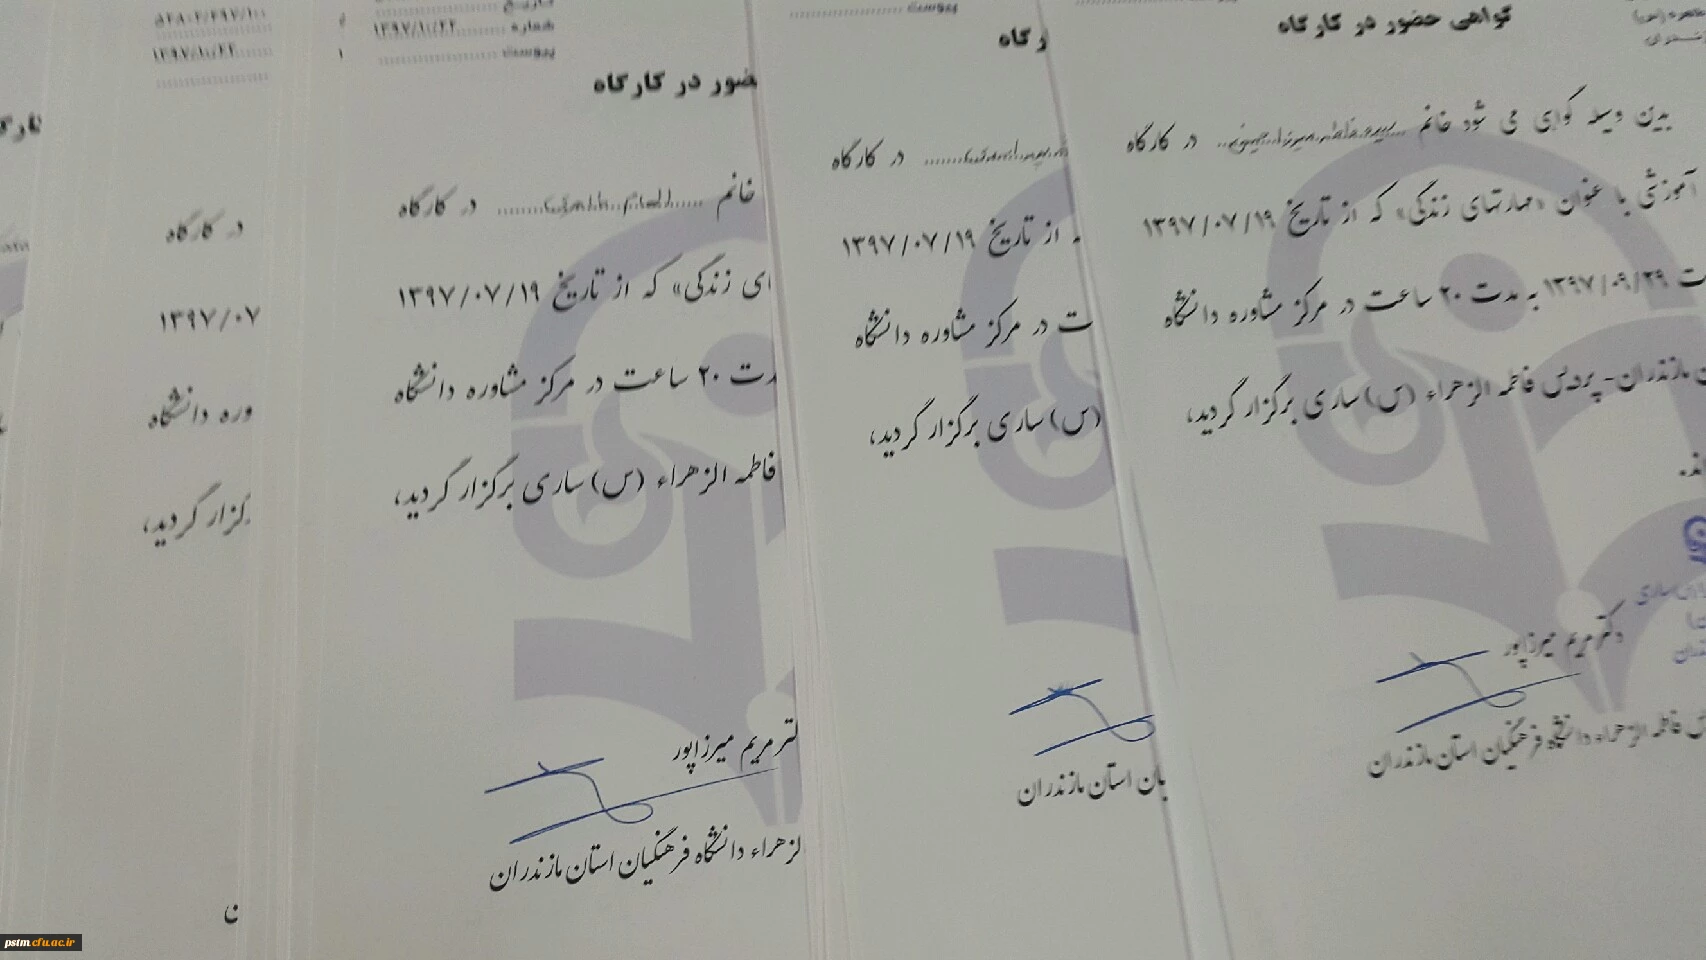 گواهی حضور در کارگاه
بدین وسیله گواهی می شود خانم سیده فاطمه میرزا حسینی در کارگاه
آموزشی با عنوان «مهارتهای زندگی» که از تاریخ ۱۳۹۷/۰۷/۱۹
ت ۱۳۹۷/۰۹/۲۹ به مدت ۲۰ ساعت در مرکز مشاوره دانشگاه
ن مازندران- پردیس فاطمه الزهراء (س) ساری برگزار گردید،
ند.
دکتر مریم میرزاپور
س فاطمه الزهراء دانشگاه فرهنگیان استان مازندران
پیوست
رگاه
در کارگاه
ه از تاریخ ۱۳۹۷/۰۷/۱۹
ت در مرکز مشاوره دانشگاه
(س) ساری برگزار گردید،
یان استان مازندران
تاریخ
شماره ۱۳۹۷/۱۰/۲۲
پیوست
ضور در کارگاه
خانم در کارگاه
ای زندگی» که از تاریخ ۱۳۹۷/۰۷/۱۹
دت ۲۰ ساعت در مرکز مشاوره دانشگاه
فاطمه الزهراء (س) ساری برگزار گردید،
کتر مریم میرزاپور
لزهراء دانشگاه فرهنگیان استان مازندران
۱۳۹۷/۱۰/۲۲
در کارگاه
۱۳۹۷/۰۷
وره دانشگاه
گزار گردید،
ن
pstm.cfu.ac.ir